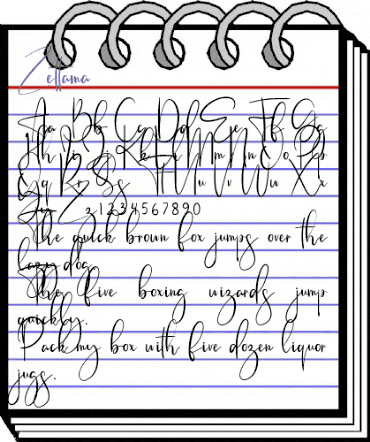 Zellama
Aa Bb Cc Dd Ee Ff Gg
Hh Ii Jj Kk Ll Mm Nn Oo Pp
Qq Rr Ss Tt Uu Vv Ww Xx
Yy Zz 1234567890
The quick brown fox jumps over the
lazy dog.
The five boxing wizards jump
quickly.
Pack my box with five dozen liquor
jugs.